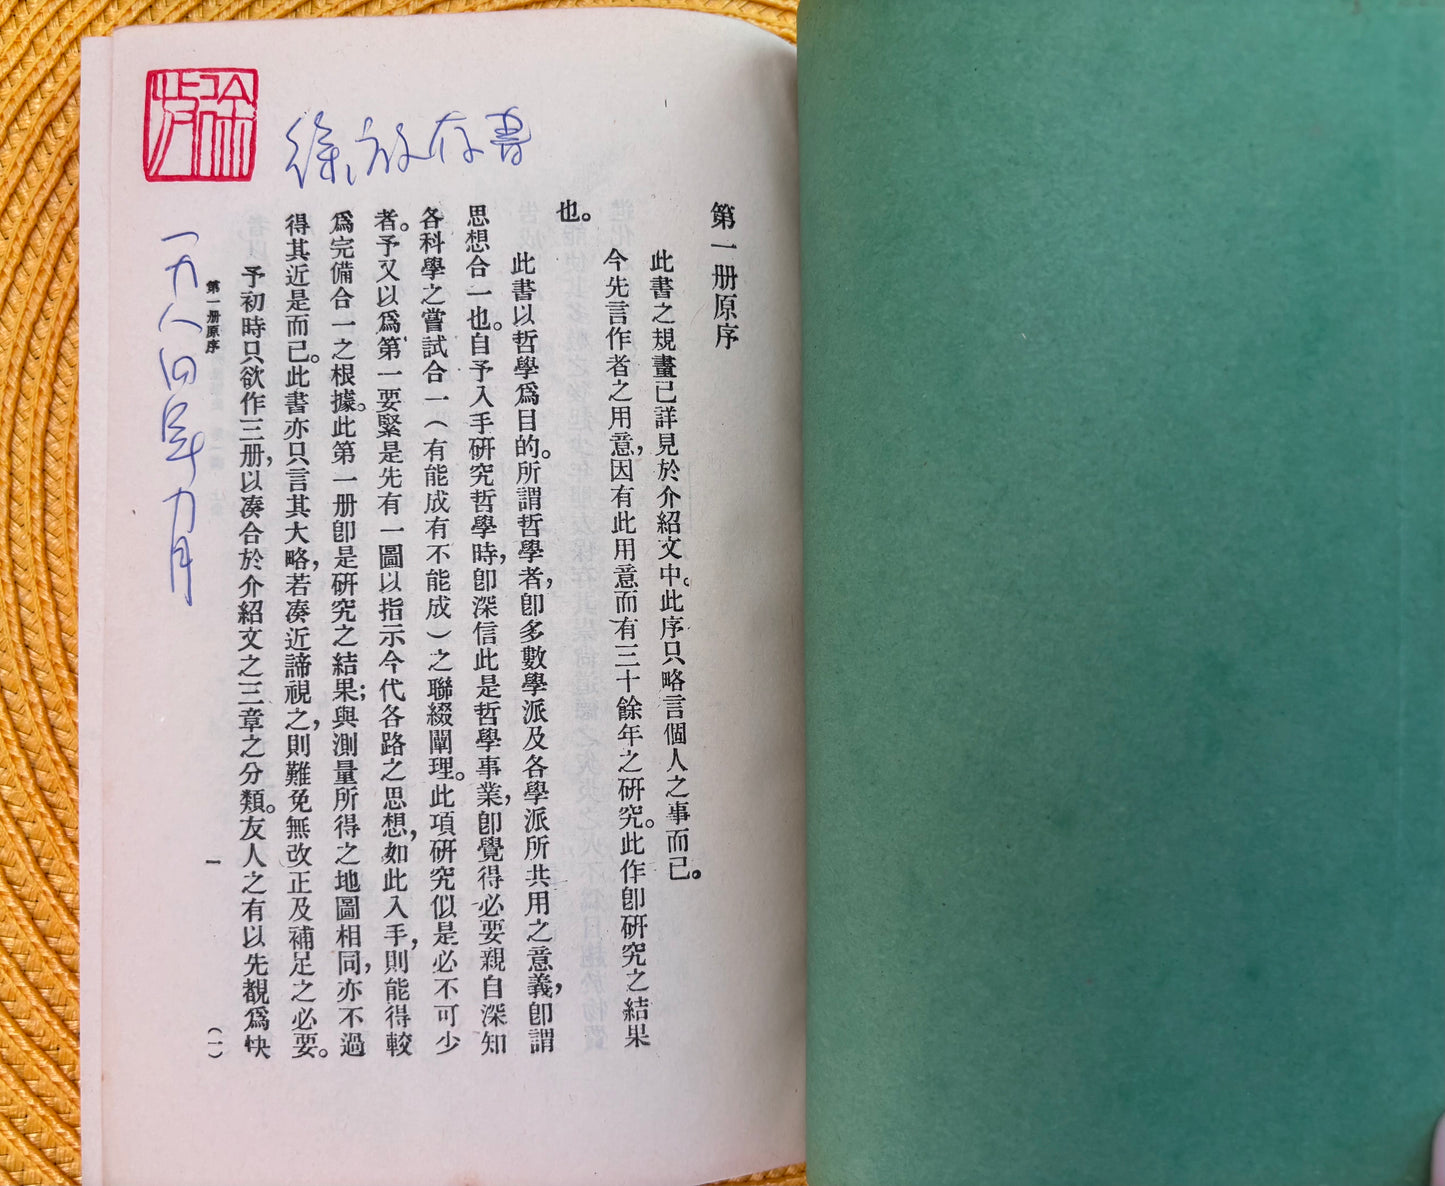 徐放
徐放存書
一九八四年九月
第一册原序
此書之規畫已詳見於介紹文中。此序只略言個人之事而已。
今先言作者之用意，因有此用意而有三十餘年之研究。此作卽研究之結果
也。
此書以哲學爲目的。所謂哲學者，卽多數學派及各學派所共用之意義，卽謂
思想合一也。自予入手研究哲學時，卽深信此是哲學事業，卽覺得必要親自深知
各科學之嘗試合一（有能成有不能成）之聯綴闡理。此項研究似是必不可少
者。予又以爲第一要緊是先有一圖以指示今代各路之思想，如此入手，則能得較
爲完備合一之根據。此第一册卽是研究之結果；與測量所得之地圖相同，亦不過
得其近是而已。此書亦只言其大略，若湊近諦視之，則難免無改正及補足之必要。
予初時只欲作三册，以凑合於介紹文之三章之分類。友人之有以先覩爲快
第一册原序
一
（一）